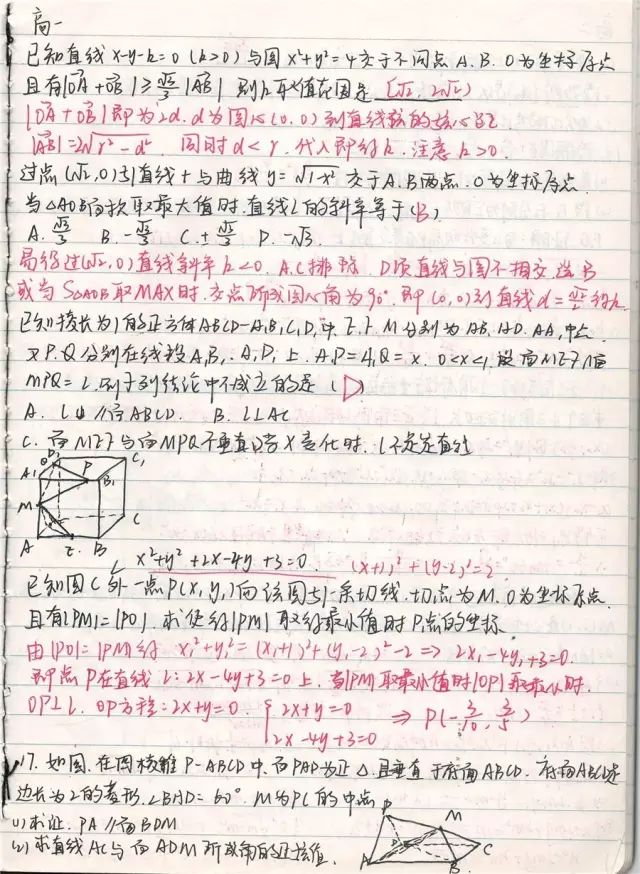 高一
已知直线 x-y-k=0 (k>0) 与圆 x²+y²=4 交于不同点 A.B. O为坐标原点
且有|OA+OB| ≥ √3/3 |AB| 则k取值范围是 [√2, 2√2)
|OA+OB| 即为2d. d为圆心(0,0)到直线弦的弦心距
|AB|=2√r²-d² 同时d<r. 代入即得k. 注意k>0.
过点(√2,0)引直线l与曲线y=√1-x² 交于A.B两点. O为坐标原点.
当△AOB面积取最大值时.直线L的斜率等于(B)
A. √3/3 B. -√3/3 C. ±√3/3 D. -√3.
易得过(√2,0)直线斜率k<0. A.C排除. D项直线与圆不相交 选B
或当S△AOB取MAX时.交点所成圆心角为90°.即(0,0)到直线d=√2/2得k.
已知棱长为1的正方体ABCD-A₁B₁C₁D₁中.E.F.M分别为AB.AD.AA₁中点.
又P.Q分别在线段A₁B₁.A₁D₁上.A₁P=A₁Q=x. 0<x<1,设面MEF∩面
MPQ=L.则下列结论中不成立的是(D)
A. L//面ABCD. B. L⊥AC
C. 面MEF与面MPQ不垂直 D.当X变化时.l不是定直线
D₁ C₁
A₁ Q P B₁
M
C
A E. B
x²+y²+2x-4y+3=0 (x+1)²+(y-2)²=2
已知圆C外一点P(x₁y₁)向该圆引一条切线.切点为M.O为坐标原点.
且有|PM|=|PO|.求使得|PM|取得最小值时P点的坐标
由|PO|=|PM|得 x₁²+y₁²=(x₁+1)²+(y₁-2)²-2 => 2x₁-4y₁+3=0.
即点P在直线L:2x-4y+3=0上.当|PM|取最小值时|OP|取最小时.
OP⊥L. OP方程:2x+y=0. { 2x+y=0 2x-4y+3=0 ⇒ P(-3/10, 3/5)
17. 如图.在四棱锥P-ABCD中.面PAD为正△.且垂直于底面ABCD.底面ABCD是
边长为2的菱形.∠BAD=60°.M为PC的中点
(1)求证.PA//面BDM
(2)求直线AC与面ADM所成角的正弦值.
P
M
D
C
A B